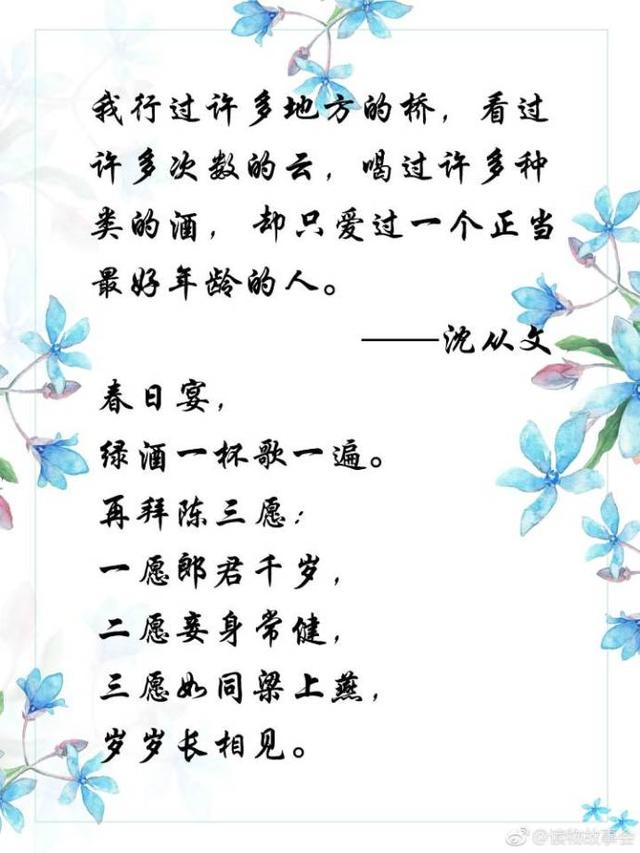 我行过许多地方的桥，看过
许多次数的云，喝过许多种
类的酒，却只爱过一个正当
最好年龄的人。
——沈从文
春日宴，
绿酒一杯歌一遍。
再拜陈三愿：
一愿郎君千岁，
二愿妾身常健，
三愿如同梁上燕，
岁岁长相见。
@读物故事会